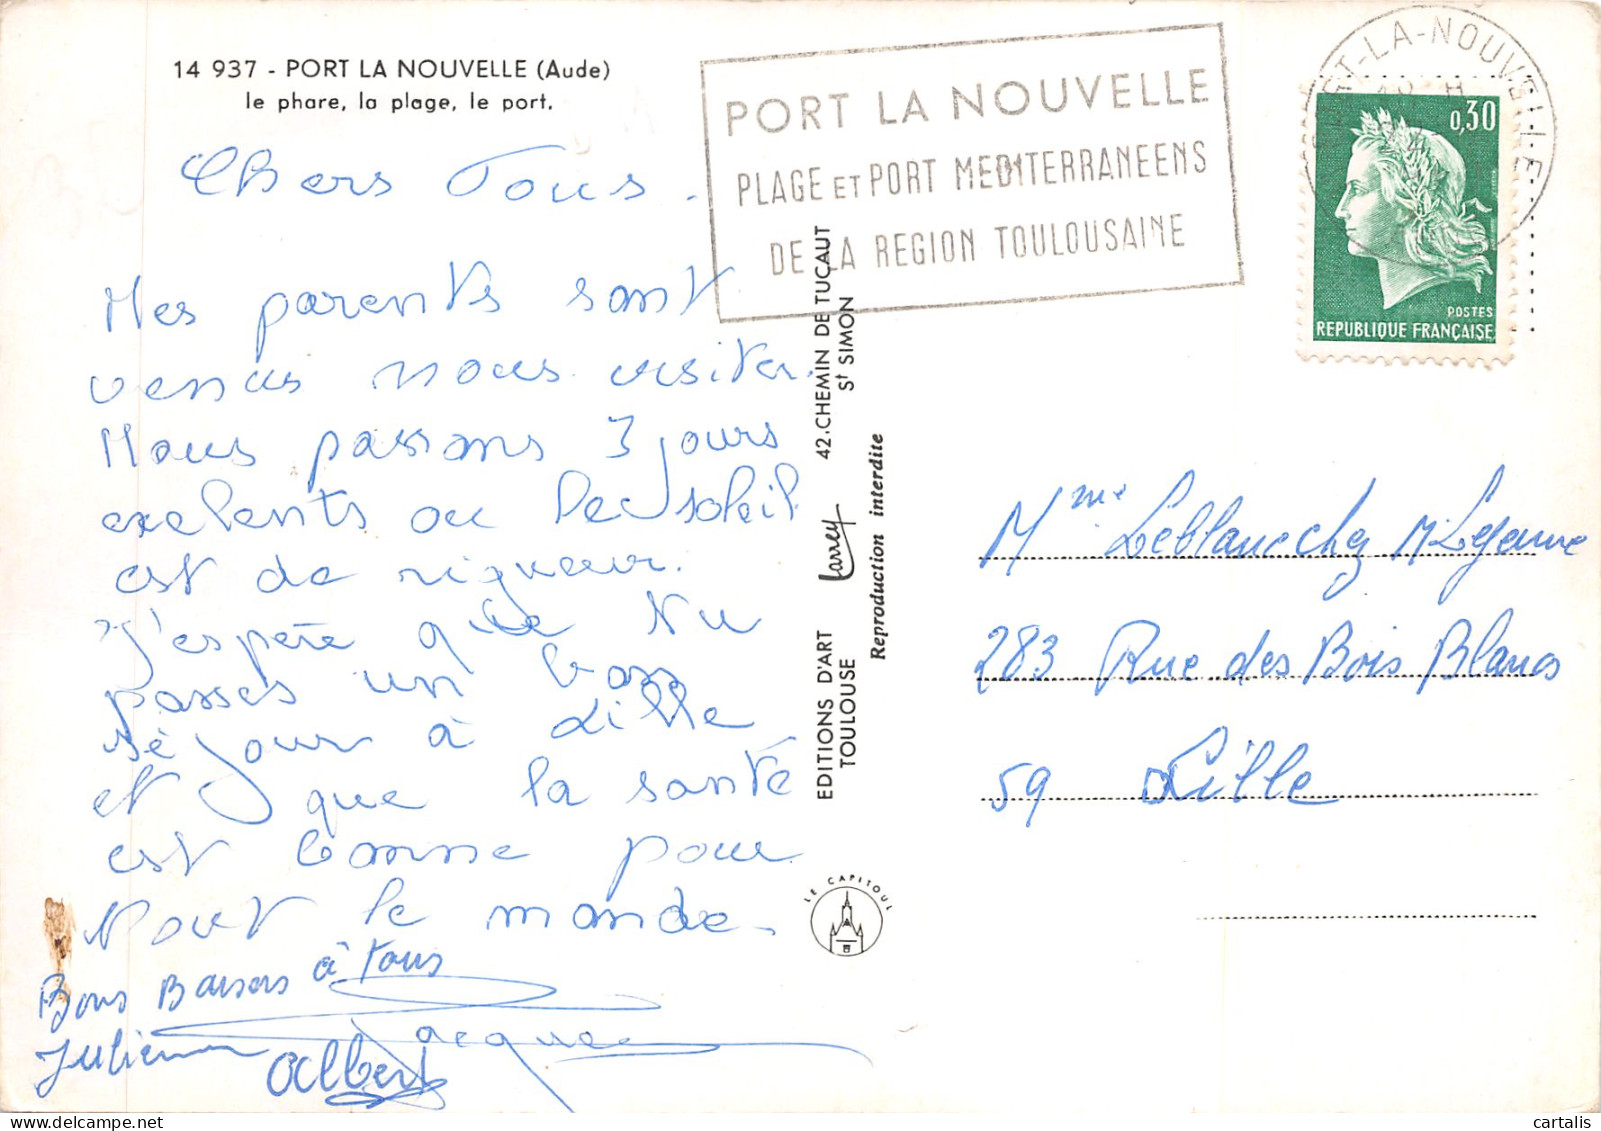 14 937 - PORT LA NOUVELLE (Aude)
le phare, la plage, le port.
Chers Tous.
Mes parents sont
venus nous visiter.
Nous passons 3 jours
exelents ou le soleil
est de rigueur.
J'espère que tu
passes un bon
séjour à Lille
et que la santé
est bonne pour
tout le monde.
Bons Baisers à tous
Julienne Jacques
Albert
PORT LA NOUVELLE
PLAGE ET PORT MEDITERRANEENS
DE LA REGION TOULOUSAINE
PORT-LA-NOUVELLE
AUDE
0,30
POSTES
REPUBLIQUE FRANÇAISE
EDITIONS D'ART Larrey 42.CHEMIN DE TUCAUT
TOULOUSE St SIMON
Reproduction interdite
LE CAPITOUL
Mme Leblanc chez M Lejeune
283 Rue des Bois Blancs
59 Lille
cartalis